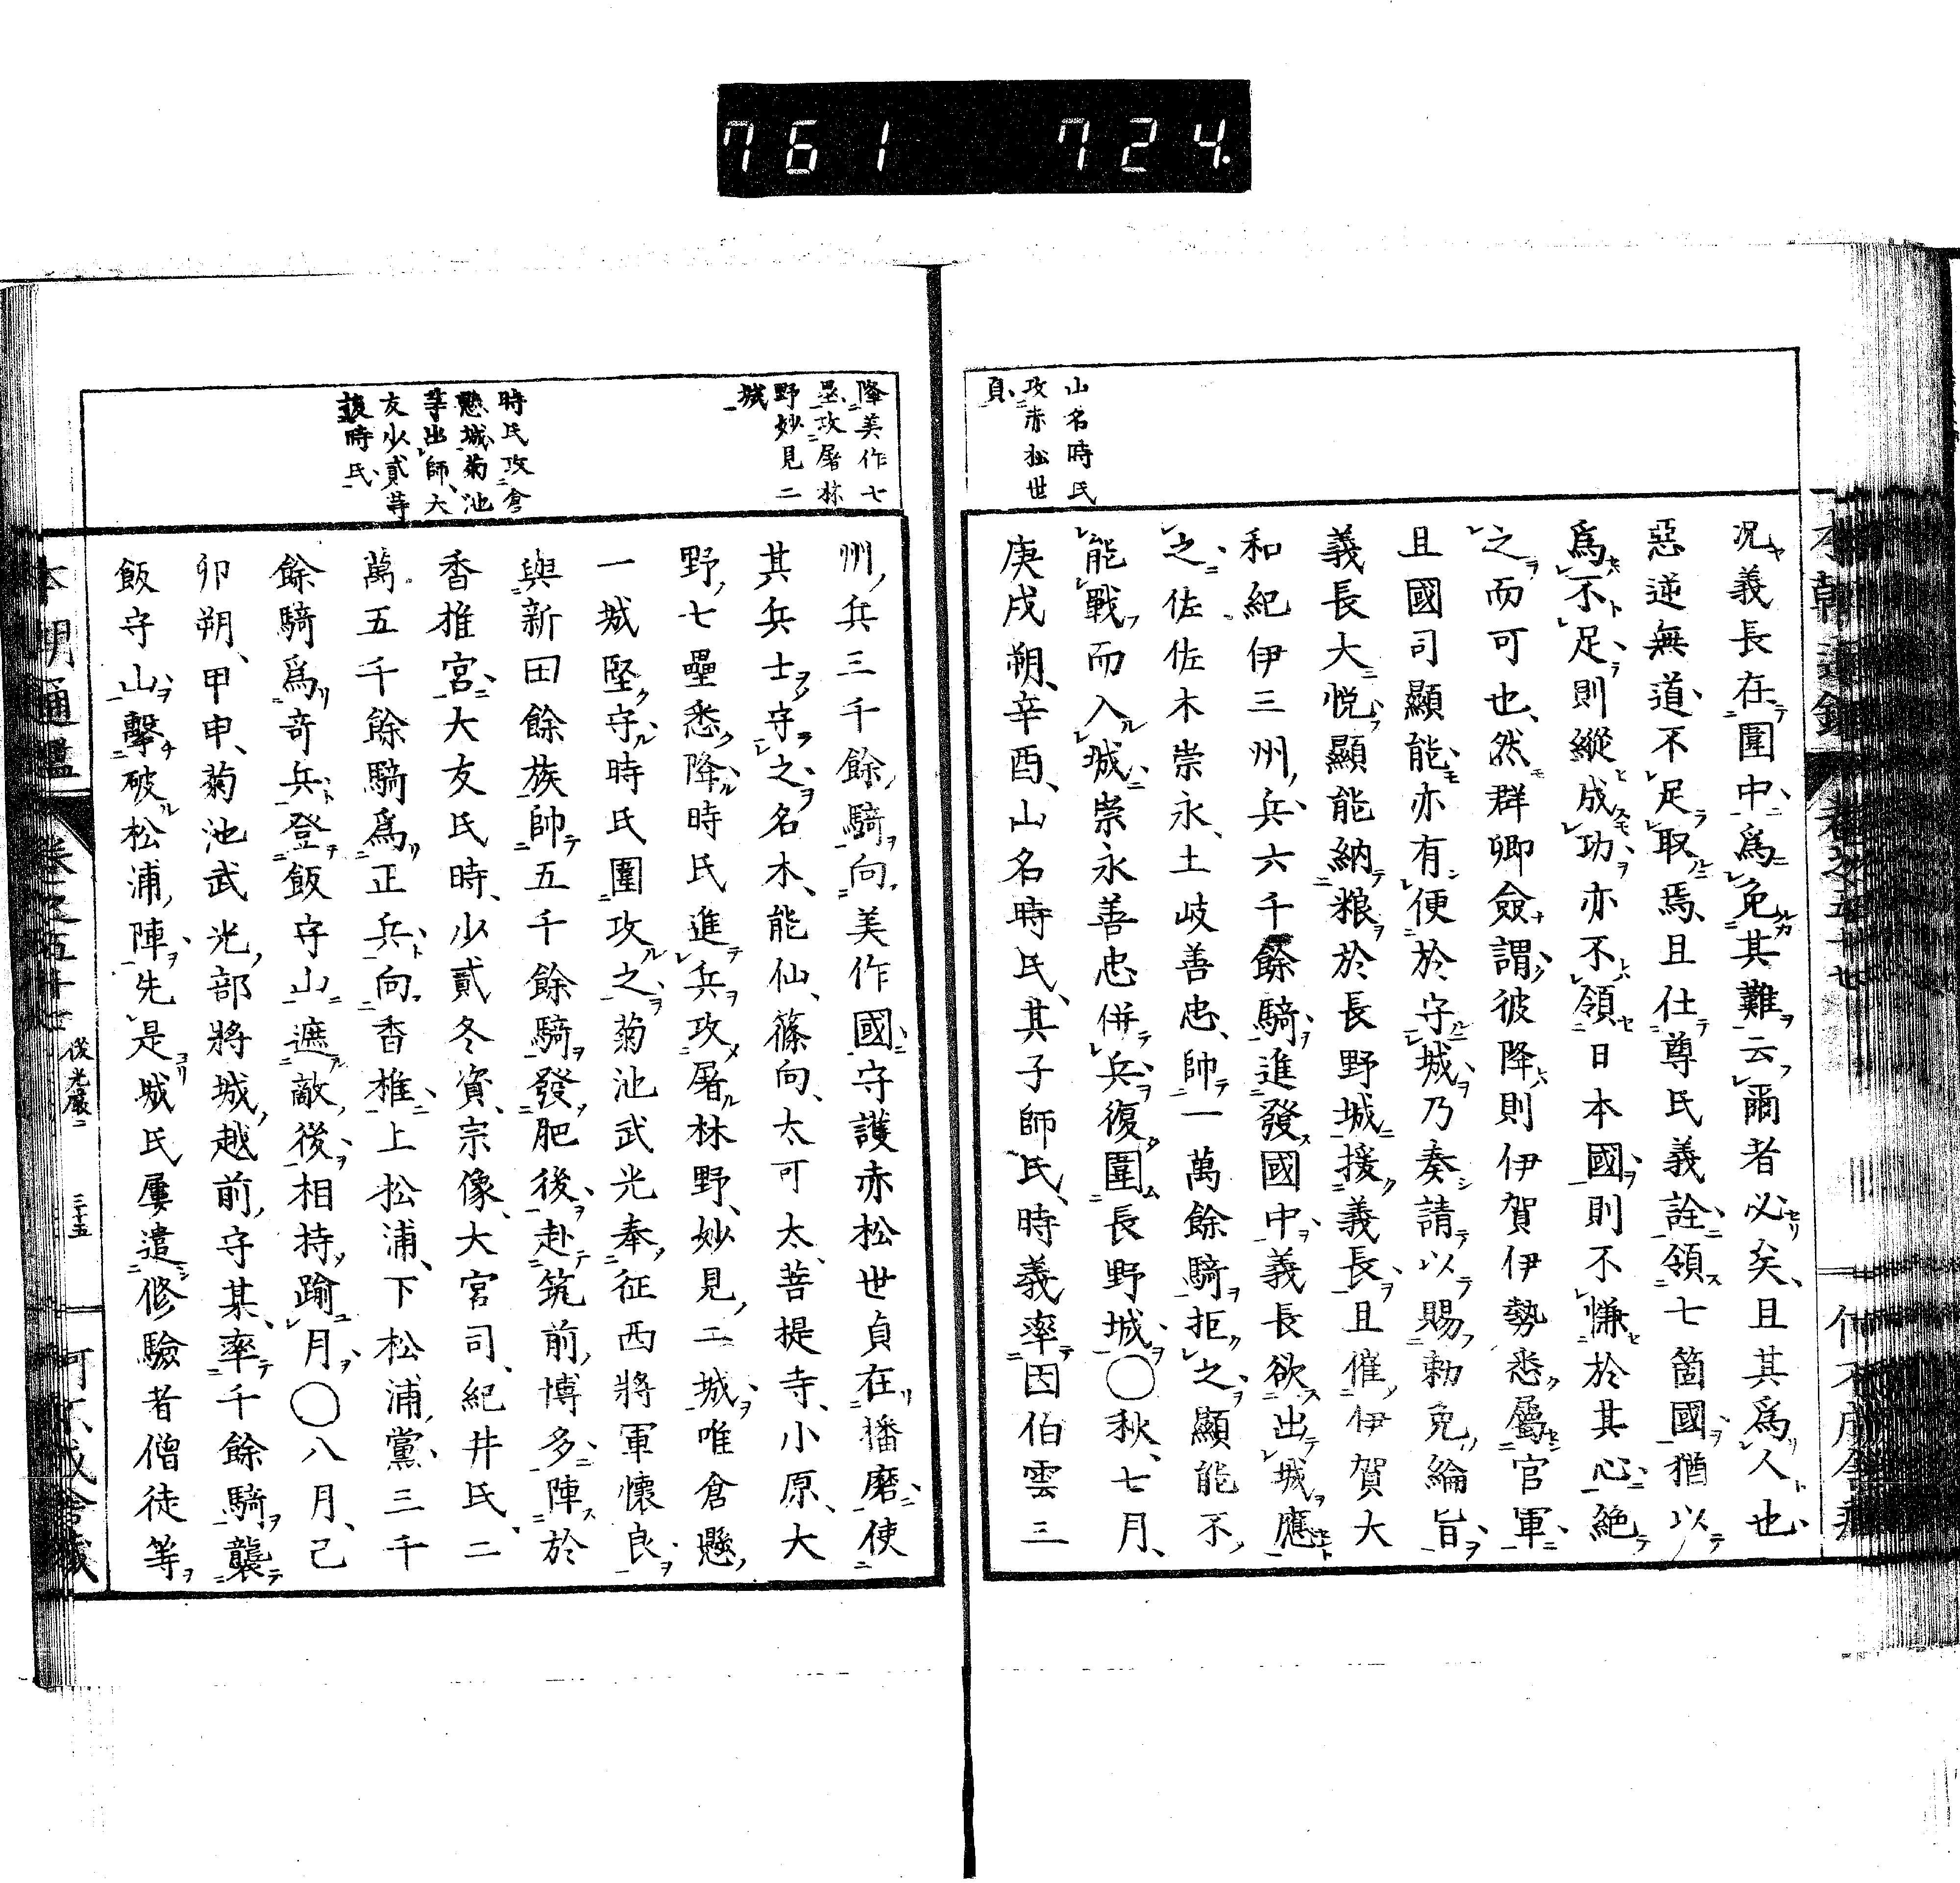 761 724
山名時氏
攻赤松世
貞
况義長在圍中爲免其難云爾者必矣且其爲人也
惡逆無道不足取焉且仕尊氏義詮領七箇國猶以
爲不足則縱成功亦不領日本國則不慊於其心絶
之而可也然群卿僉謂彼降則伊賀伊勢悉屬官軍
且國司顯能亦有便於守城乃奏請以賜勅免綸旨
義長大悦顯能納粮於長野城援義長且催伊賀大
和紀伊三州兵六千餘騎進發國中義長欲出城應
之佐佐木崇永土岐善忠帥一萬餘騎拒之顯能不
能戰而入城崇永善忠併兵復圍長野城〇秋七月
庚戌朔辛酉山名時氏其子師氏時義率因伯雲三
降美作七
壘攻屠林
野妙見二
城
時氏攻倉
懸城菊池
等出師大
友少貳等
時氏
州兵三千餘騎向美作國守護赤松世貞在播磨使
其兵士守之名木能仙篠向大可太菩提寺小原大
野七壘悉降時氏進兵攻屠林野妙見二城唯倉懸
一城堅守時氏圍攻之菊池武光奉征西將軍懷良
與新田餘族帥五千餘騎發肥後赴筑前博多陣於
香椎宮大友氏時少貳冬資宗像大宮司紀井氏二
萬五千餘騎爲正兵向香椎上松浦下松浦黨三千
餘騎爲奇兵登飯守山遮敵後相持踰月〇八月己
卯朔甲申菊池武光部將城越前守某率千餘騎襲
飯守山擊破松浦陣先是城氏屢遣修驗者僧徒等
本朝通鑑 卷之五十七 後光嚴二 三十五